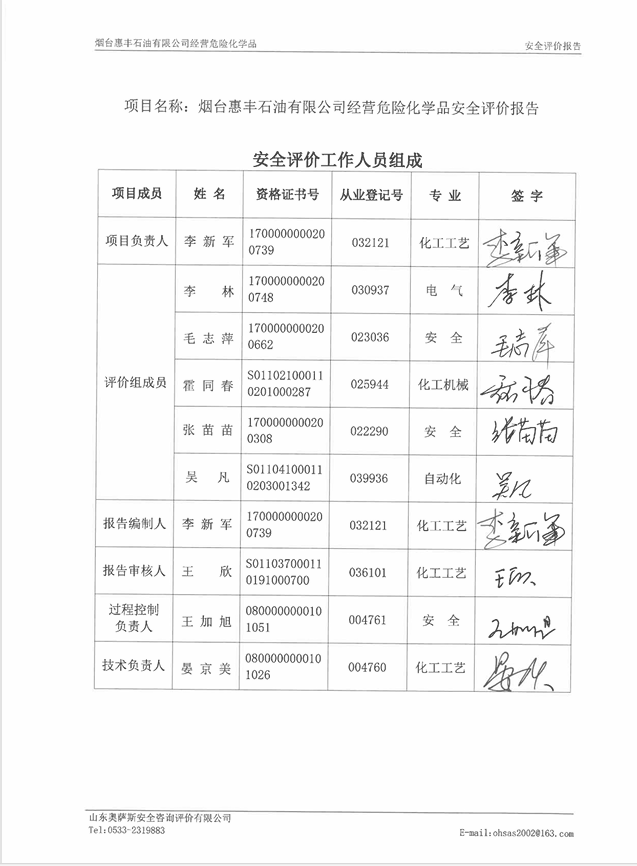 烟台惠丰石油有限公司经营危险化学品 安全评价报告
项目名称：烟台惠丰石油有限公司经营危险化学品安全评价报告
安全评价工作人员组成
项目成员 姓 名 资格证书号 从业登记号 专 业 签 字
项目负责人 李新军 170000000020 0739 032121 化工工艺 李新军
评价组成员 李 林 170000000020 0748 030937 电 气 李林
毛志萍 170000000020 0662 023036 安 全 毛志萍
霍同春 S01102100011 0201000287 025944 化工机械 霍同春
张苗苗 170000000020 0308 022290 安 全 张苗苗
吴 凡 S01104100011 0203001342 039936 自动化 吴凡
报告编制人 李新军 170000000020 0739 032121 化工工艺 李新军
报告审核人 王 欣 S01103700011 0191000700 036101 化工工艺 王欣
过程控制 负责人 王加旭 080000000010 1051 004761 安 全 王加旭
技术负责人 晏京美 080000000010 1026 004760 化工工艺
山东奥萨斯安全咨询评价有限公司
Tel:0533-2319883 E-mail:ohsas2002@163.com